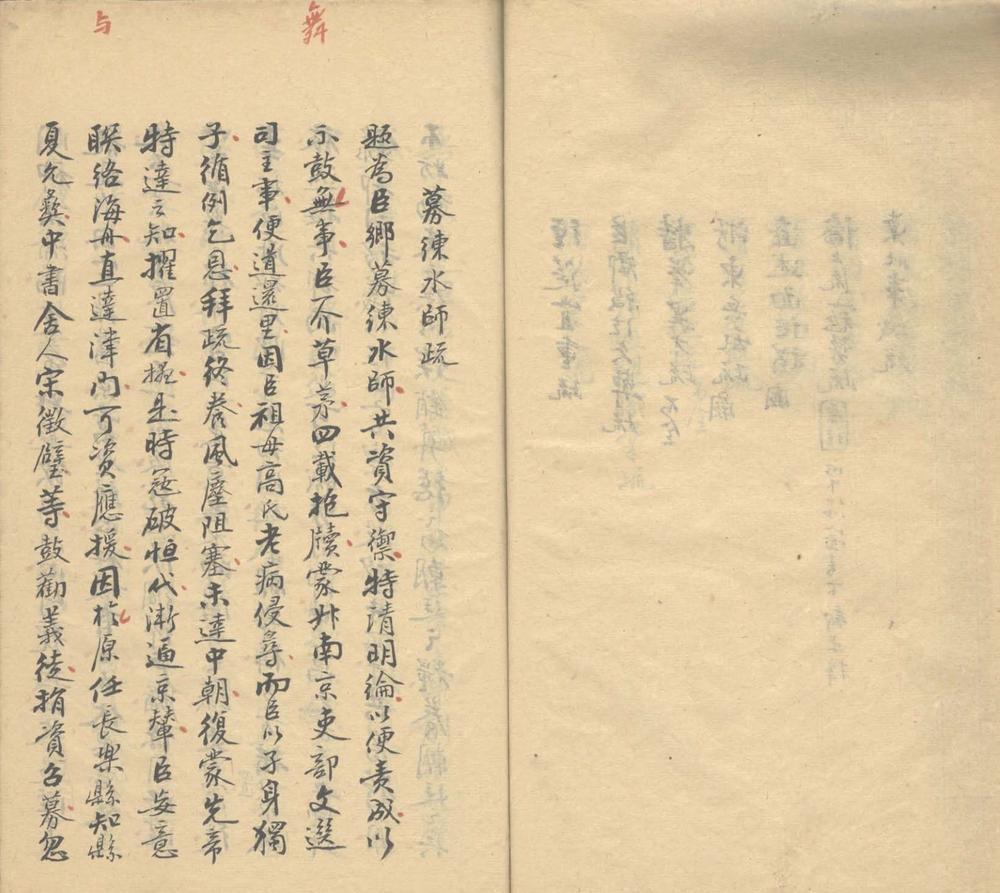 舞
与
募練水師疏
題為臣鄉募練水師共資守禦特請明綸以便責成以
示鼓無事臣不草茅四載抱牘蒙升南京吏部文選
司主事便道還里因臣祖母高氏老病侵尋而臣以子身獨
子循例乞恩拜疏終養風塵阻塞未達中朝復蒙先帝
特達之知擢置省掖是時寇破恒代漸逼京輦臣妄意
聯絡海舟直達津門可資應援因於原任長樂縣知縣
夏允彝中書舍人宋徵璧等鼓勸義徒捐資召募忽